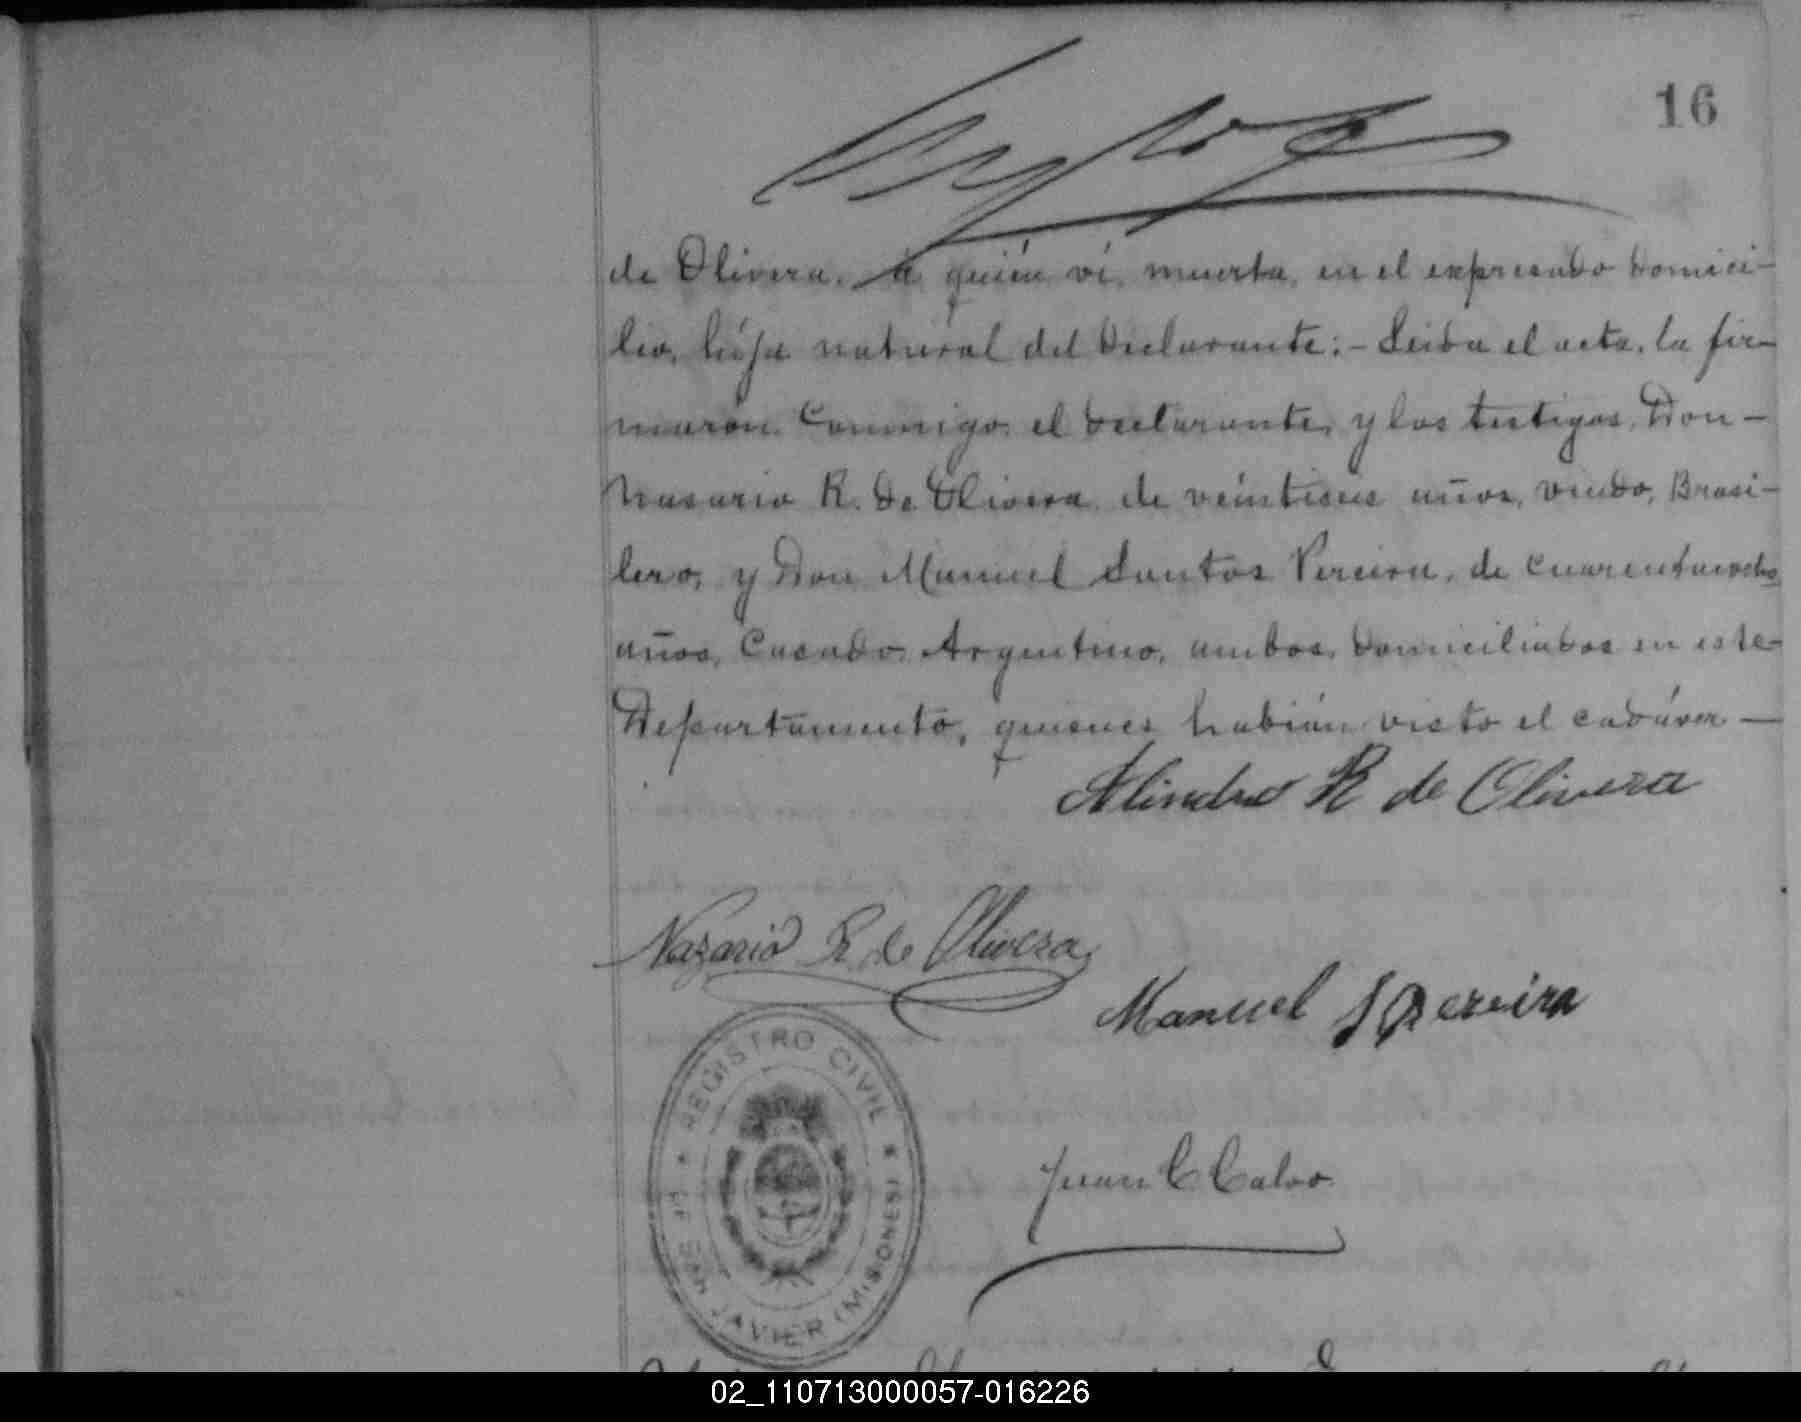 16
de Olivera. á quién ví, muerta, en el expresado domici-
lio, híja naturál del declarante:- Leida el acta, la fir-
marón Conmigo, el declarante, y los testigos, Don-
Nasario R. de Olivera, de veíntiseis años, viudo, Brasi-
lero, y Don Manuel Santos Pereira, de cuarentaiocho
años, Casado, Argentino, ambos, domiciliados en este-
Departamento, quienes habián visto el cadáver —
R de Olivera
Nazario R. de Olivera
Manuel S Pereira
REGISTRO CIVIL
DE SAN JAVIER (MISIONES)
Juan C Calvo
02_110713000057-016226